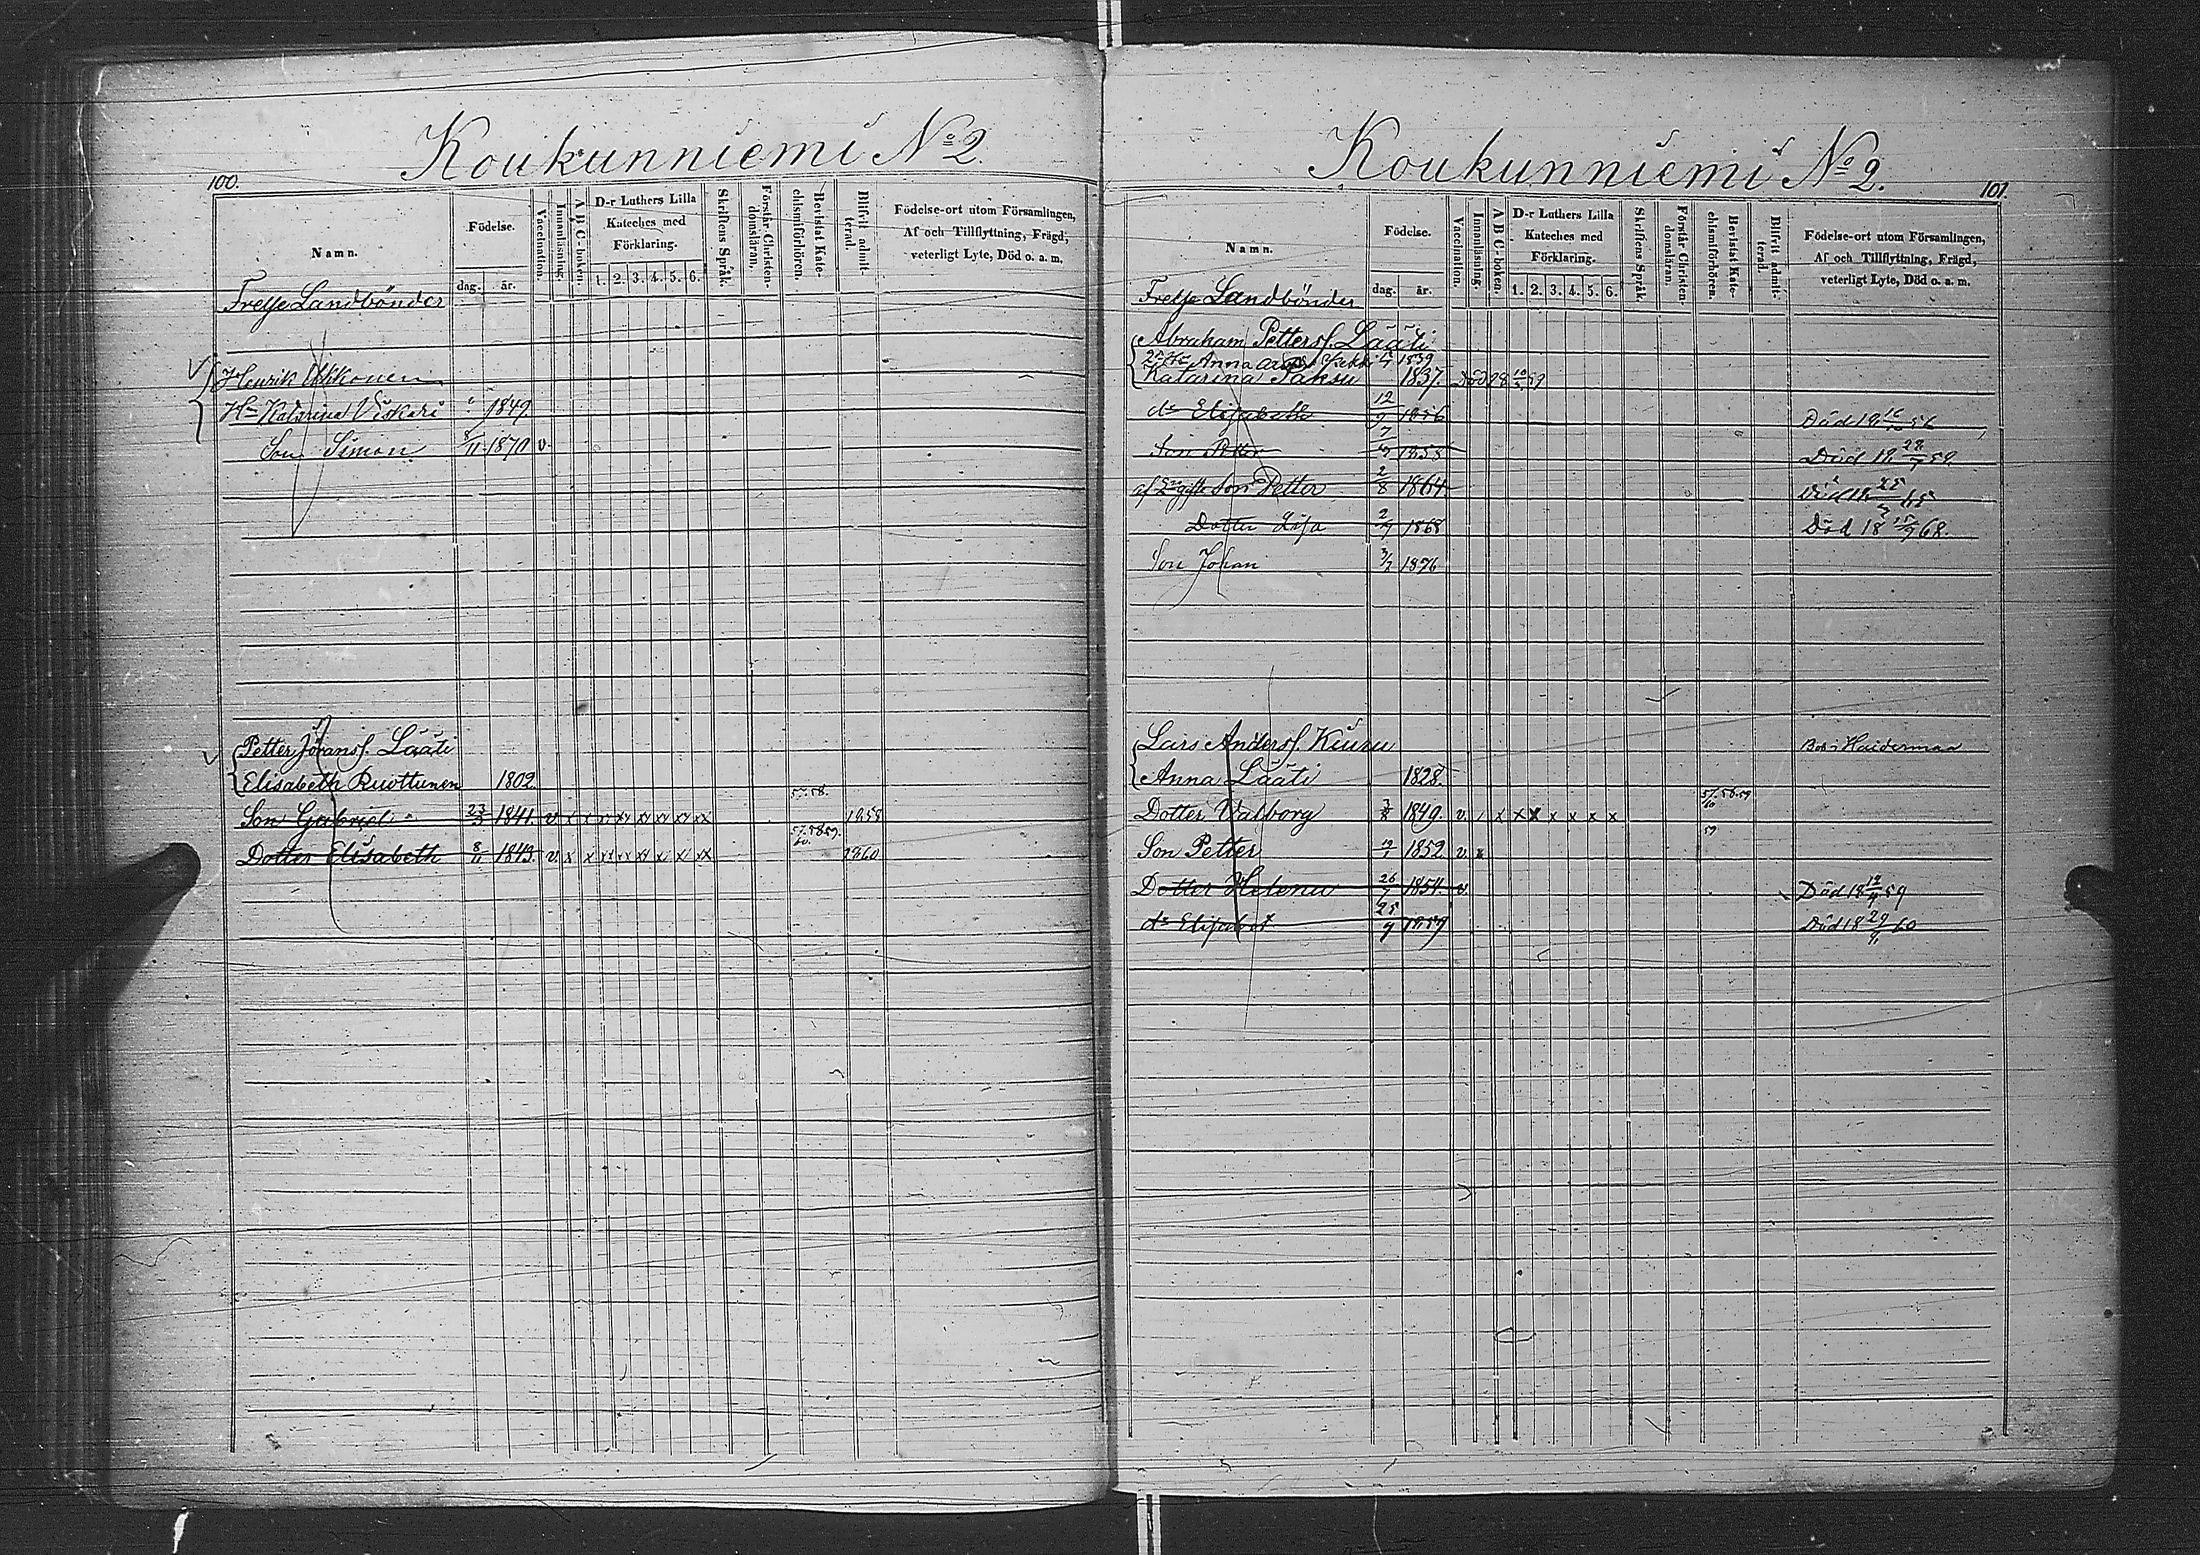 Koukunniemi No 2.
100.
Namn.
Födelse.
dag.
år.
Vaccination.
Innanläsning.
A B C-boken.
D-r Luthers Lilla
Kateches med
Förklaring.
1. 2. 3. 4. 5. 6.
Skriftens Språk.
Förstår Christen-
domsläran.
Bevistat Kate-
chismiförhören.
Blifvit admit-
terad.
Födelse-ort utom Församlingen,
Af och Tillflyttning, Frägd,
veterligt Lyte, Död o. a. m.
Frelse Landbönder
Henrik Ukkonen
Hn Katarina Viskari 1849
Son Simon 11 1870 v.
Petter Johanss. Lääti
Elisabeth Ruottunen 1802.
57. 58.
Son Gabriel 23/3 1841. v. x x xx xx xx xx xx 1858
57. 58 59.
60.
Dotter Elisabeth 8/11 1843. v. x x xx xx xx x x xx 1860
Koukunniemi No 2.
101.
Namn.
Födelse.
dag.
år.
Vaccination.
Innanläsning.
A B C-boken.
D-r Luthers Lilla
Kateches med
Förklaring.
1. 2. 3. 4. 5. 6.
Skriftens Språk.
Förstår Christen-
domsläran.
Bevistat Kate-
chismiförhören.
Blifvit admit-
terad.
Födelse-ort utom Församlingen,
Af och Tillflyttning, Frägd,
veterligt Lyte, Död o. a. m.
Frelse Landbönder
Abraham Petterss. Lääti
Anna 1839
Katarina Paksu 1837. Död 18 59
do Elisabeth 12/9 1856 Död 18 56
Son Petter 1858 Död 18 59.
af gifte Son Petter 2/8 1864 Död 18 65
Dotter Lisa 2/9 1868 Död 18 68.
Son Johan 3/7 1876
Lars Anderss. Kiuru
Anna Lääti 1828.
57. 58. 59
60
Dotter Valborg 1849. v. x x x x x x x
59
Son Petter 1852 v. x
Dotter Helena 26 1854. v. Död 18 59
do Elisabet 25/9 1859 Död 18 29/9 60